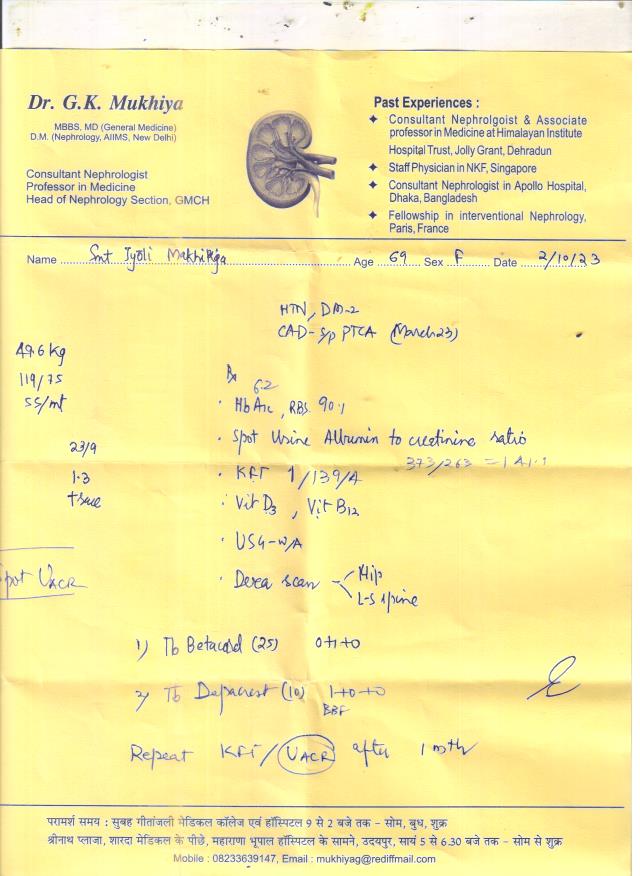 Dr. G.K. Mukhiya
MBBS, MD (General Medicine)
D.M. (Nephrology, AIIMS, New Delhi)
Consultant Nephrologist
Professor in Medicine
Head of Nephrology Section, GMCH
Past Experiences :
Consultant Nephrolgoist & Associate
professor in Medicine at Himalayan Institute
Hospital Trust, Jolly Grant, Dehradun
Staff Physician in NKF, Singapore
Consultant Nephrologist in Apollo Hospital,
Dhaka, Bangladesh
Fellowship in interventional Nephrology,
Paris, France
Name Smt Jyoti Age 69 Sex F Date 2/10/23
HTN, DM-2
CAD- s/p PTCA (March 23)
49.6 kg
119/75
55/mt
Rx
6.2
HbA1c, RBS. 90.1
Spot Urine Albumin to creatinine ratio
373/263 = 141.1
23/9
KFT 1/139/4
1.3
Vit D3, Vit B12
trace
USG-W/A
Spot UACR
Dexa scan - Hip
L-S spine
1) Tb Betacard (25) 0+1+0
2) Tb (10) 1+0+0
BBF
Repeat KFT/ UACR after 1 mth
परामर्श समय : सुबह गीतांजली मेडिकल कॉलेज एवं हॉस्पिटल 9 से 2 बजे तक - सोम, बुध, शुक्र
श्रीनाथ प्लाजा, शारदा मेडिकल के पीछे, महाराणा भूपाल हॉस्पिटल के सामने, उदयपुर, सायं 5 से 6.30 बजे तक - सोम से शुक्र
Mobile : 08233639147, Email : mukhiyag@rediffmail.com